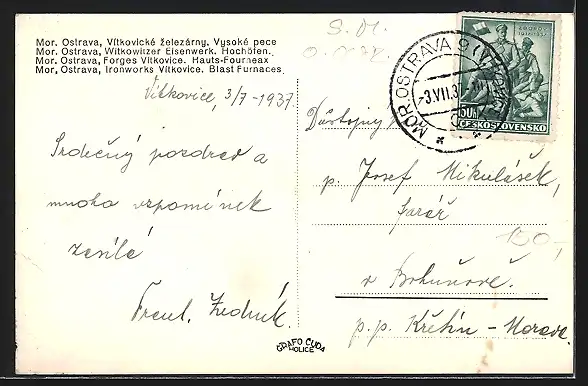 Mor. Ostrava, Vítkovické železárny, Vysoké pece
Mor. Ostrava, Witkowitzer Eisenwerk. Hochöfen.
Mor. Ostrava, Forges Vítkovice. Hauts-Fourneax
Mor, Ostrava, Ironworks Vítkovice. Blast Furnaces
Vítkovice, 3/7-1937.
Srdečný pozdrav a
mnoho vzpomínek
zasílá
Frant. Zedník.
S. M.
MOR. OSTRAVA 9
-3.VII.37
ZBOROV
1917-1937
50h
ČESKOSLOVENSKO
Důstojný
p. Josef Mikulášek,
farář
120,-
v Bohuňově.
p.p. Křetín - Morava.
GRAFO ČUDA
HOLICE